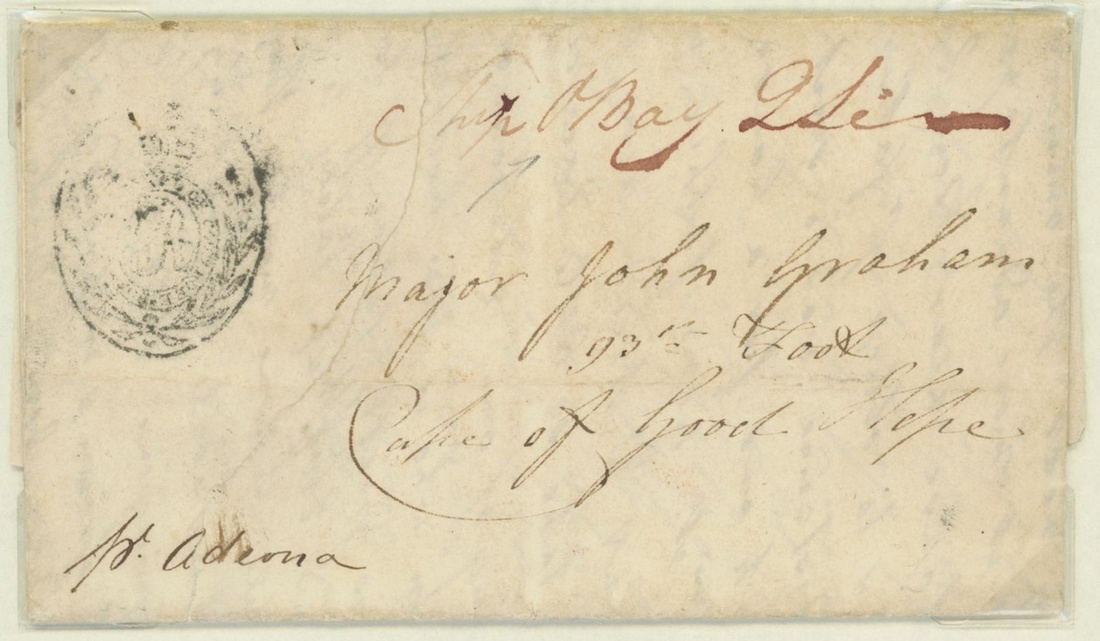 Ship
Bay
Major John Graham
93rd Foot
Cape of Good Hope
pr. Adeona